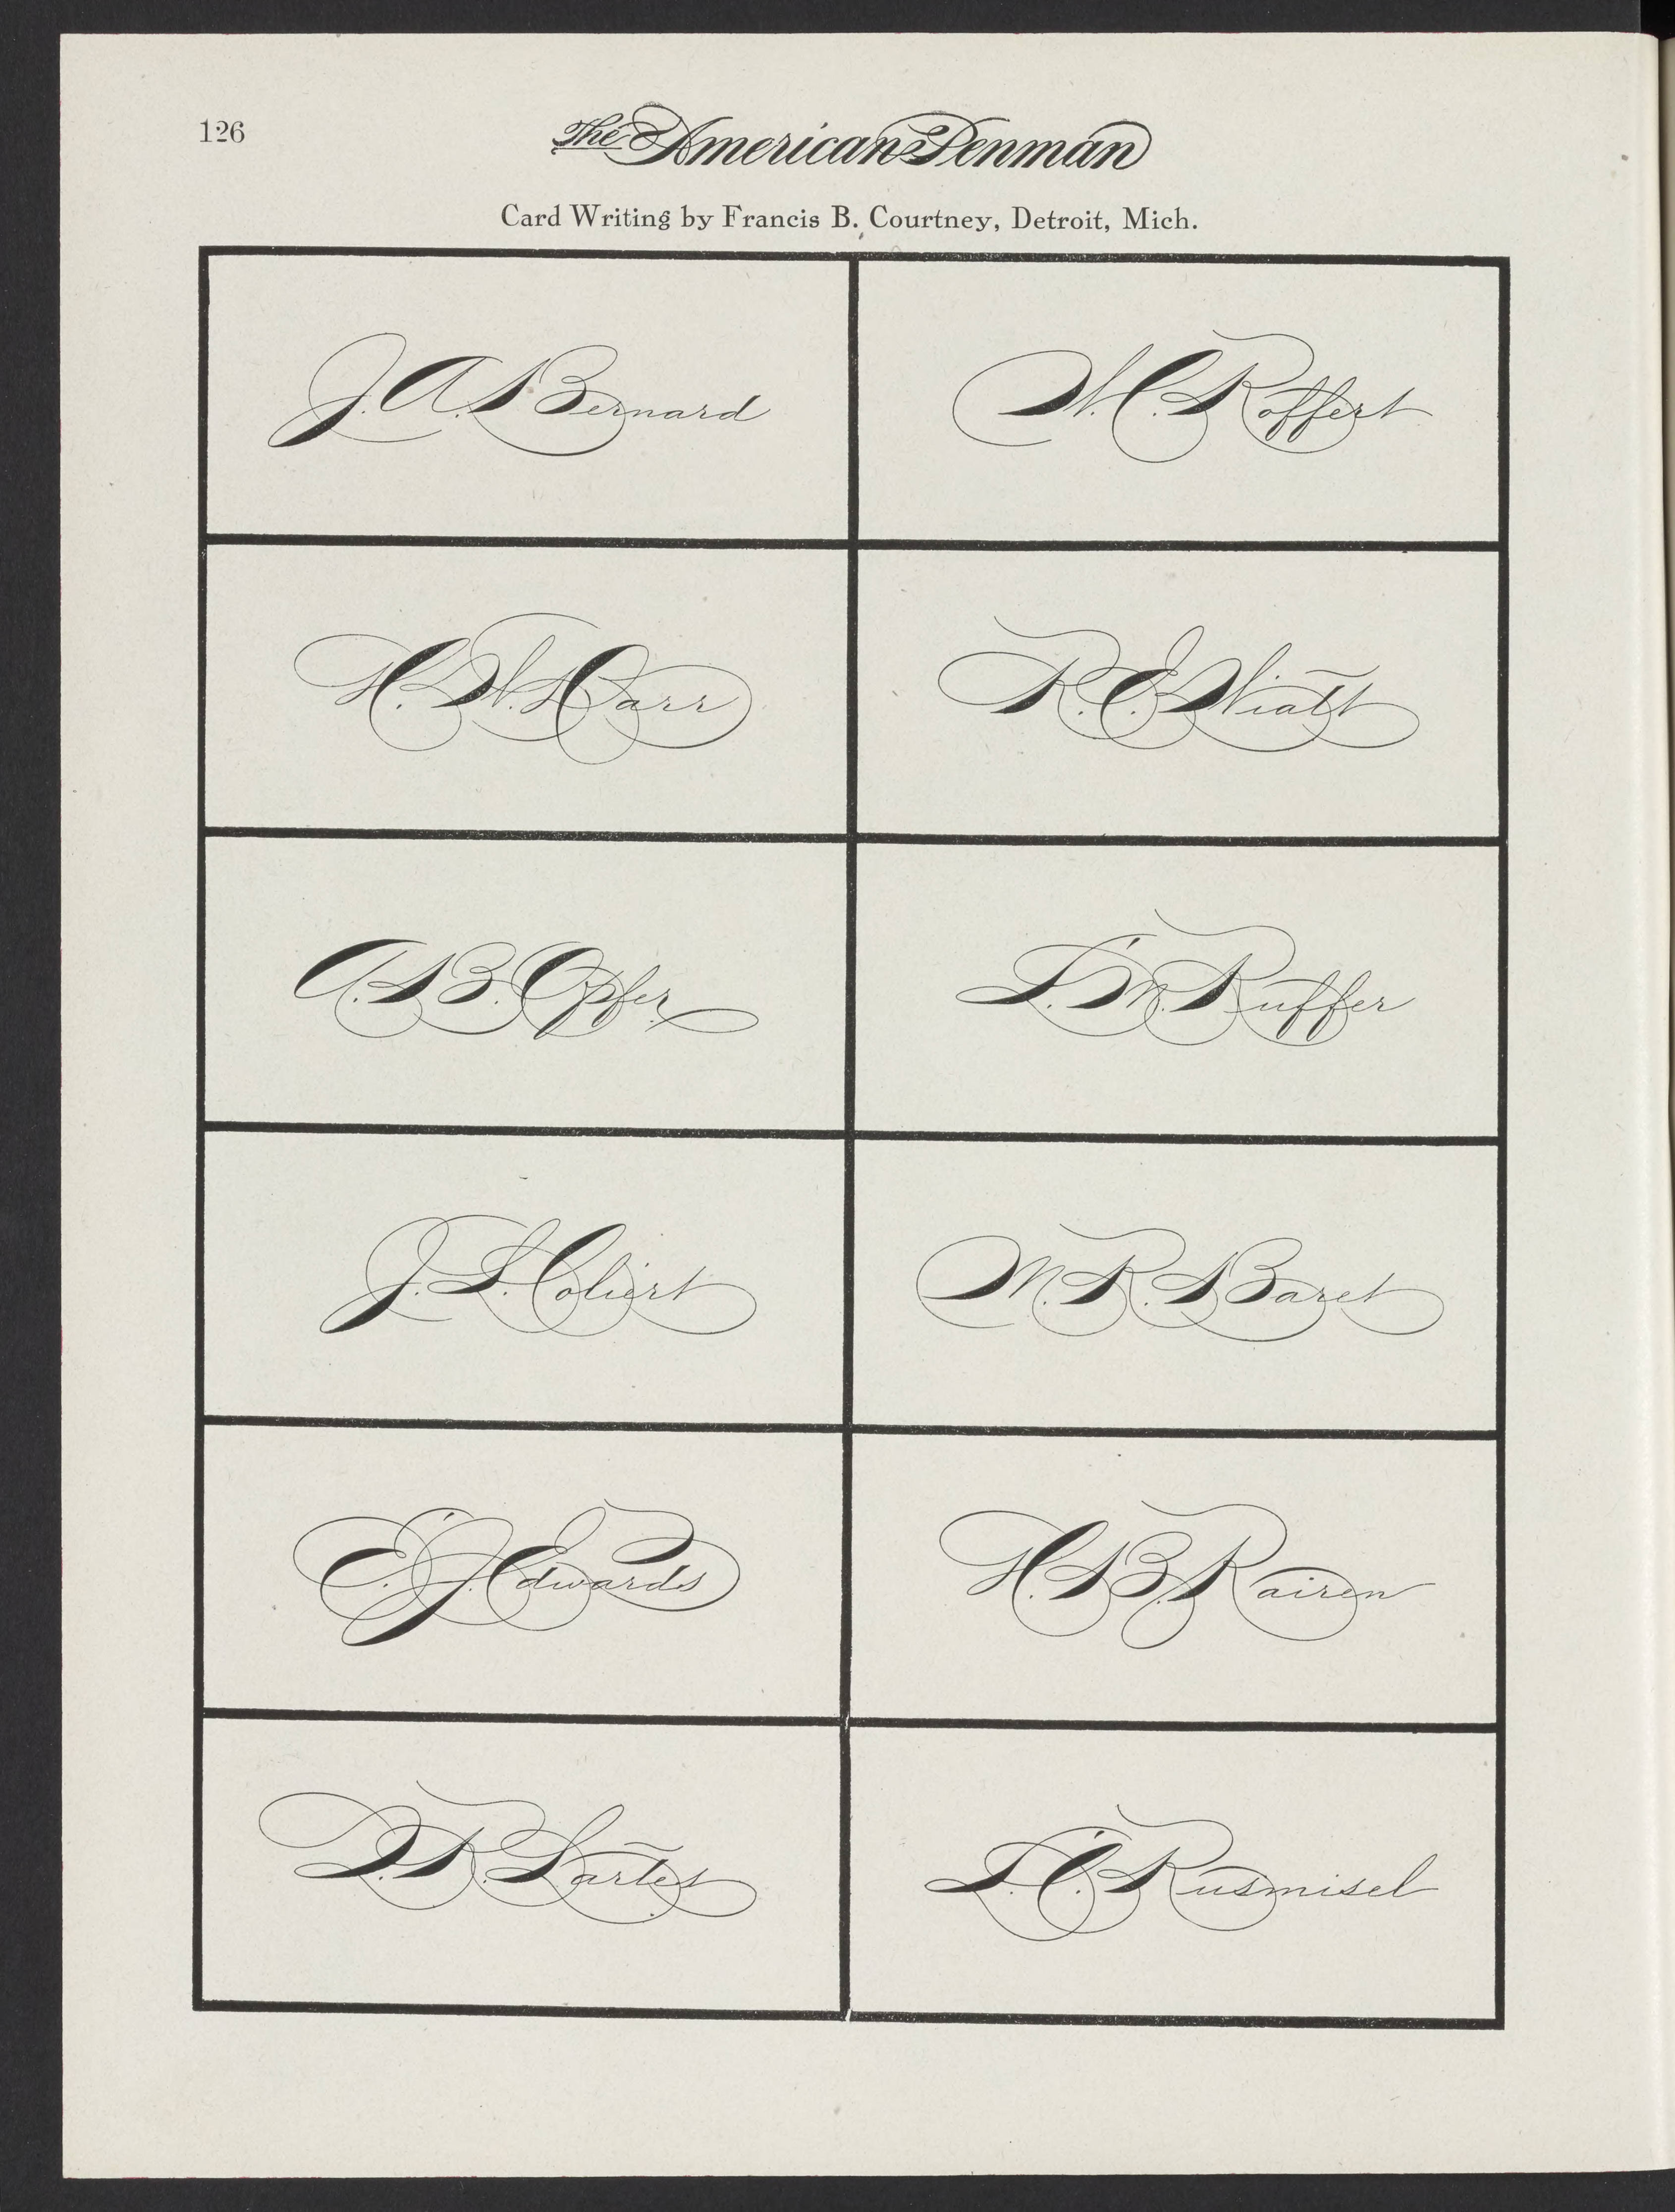 126
The American Penman
Card Writing by Francis B. Courtney, Detroit, Mich.
J. A. Bernard
W. C. Roffert
H. W. Carr
R. E. Wiatt
A. B. Opfer
L. M. Ruffer
J. L. Coliert
M. R. Baret
E. J. Edwards
H. B. Rairen
D. R. Sartes
L. C. Rusmisel